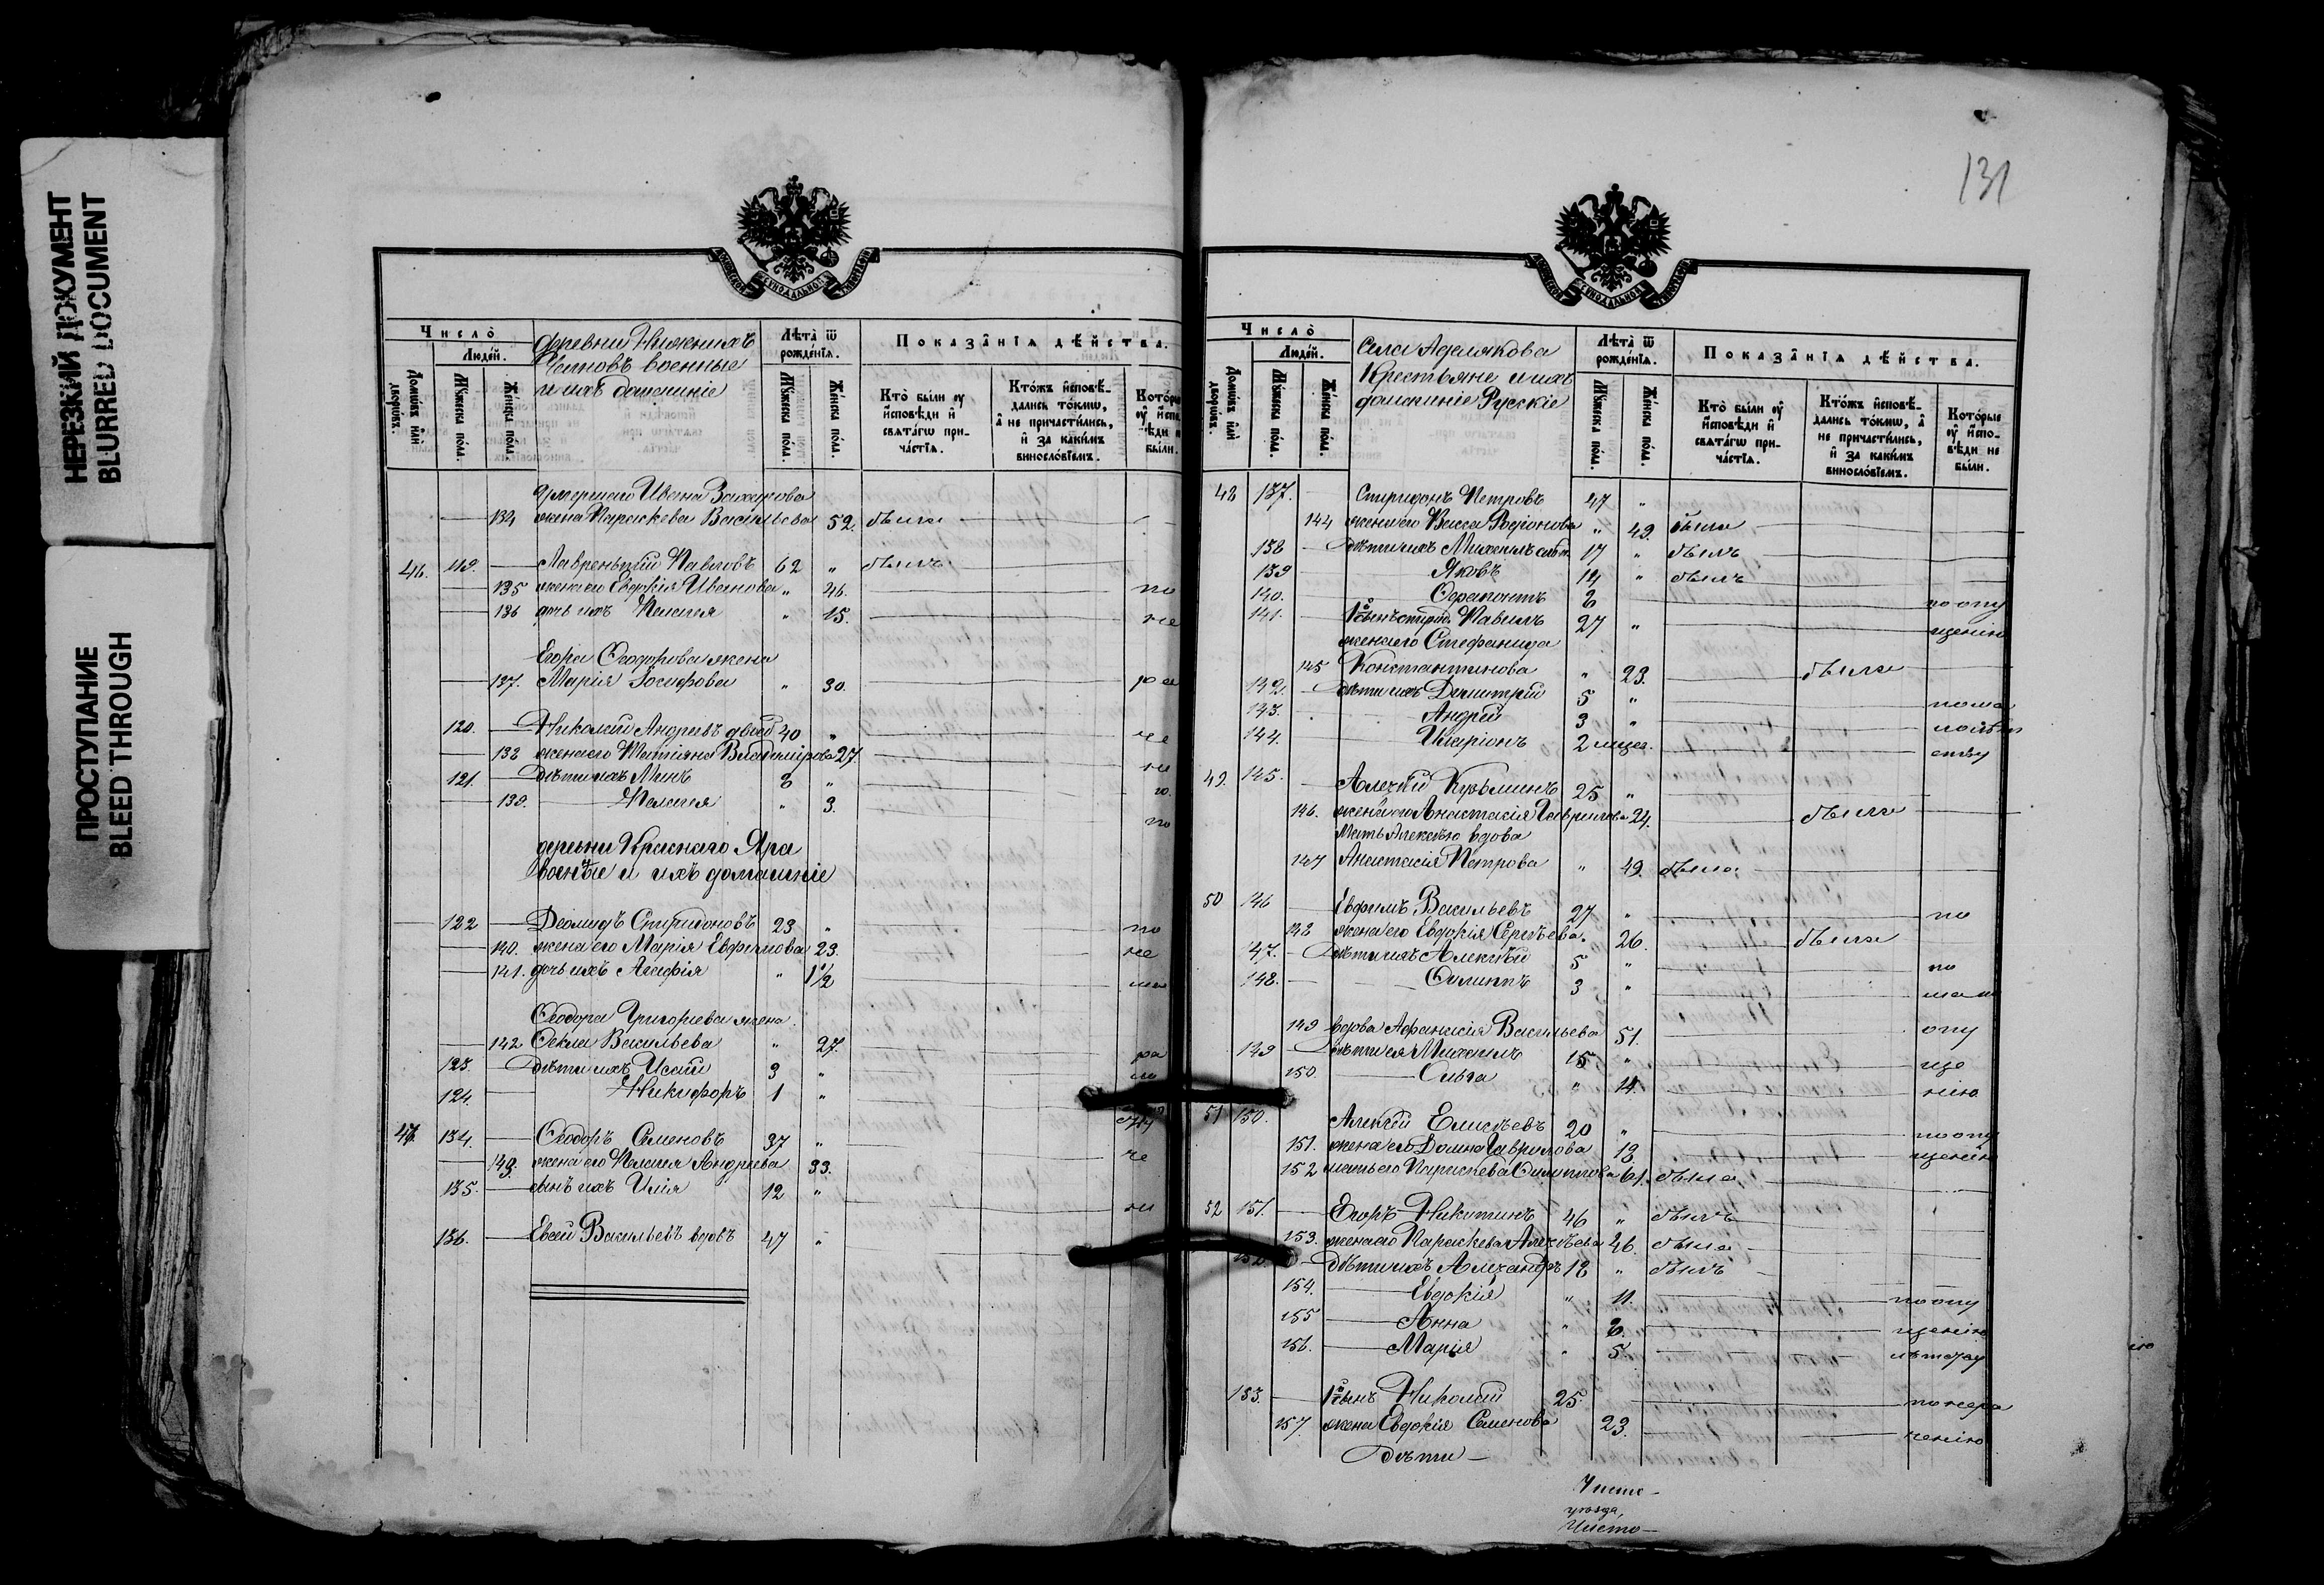 НЕРЕЗКИЙ ДОКУМЕНТ
BLURRED DOCUMENT
ПРОСТУПАНИЕ
BLEED THROUGH
Число̀
Людей.
Домѡвъ или дворѡвъ.
Мꙋжеска полꙋ.
Женска полꙋ.
деревни Нижнихъ
Челновъ военные
и ихъ домашніе
Лѣта̀ ѿ рожденїѧ.
Мꙋжеска полꙋ.
Женска полꙋ.
Показа̑нїѧ дѣйства.
Кто̀ были ᲂу҆ и҆сповѣди и҆ свѧта́гѡ причастїѧ.
Кто́жъ и҆сповѣдались то́кмѡ, а҆ не причасти́лись, и҆ за каки́мъ винослові́емъ.
умершаго Ивана Захарова
134 жена Параскева Васильева 52. была
46. 119. Лаврентій Павловъ 62 " былъ
135 жена его Евдокія Иванова " 46. по
136 дочь ихъ Пелагея " 15. не
Егора Ѳеодорова жена
137. Марія Іосифова " 30. ра
120. Николай Андреевъ 40 " че
138 жена его Татіана Владимірова 27. ні
121. Дѣти ихъ Минъ 8 " ю.
139. Пелагея " 3. по
деревни Краснаго Яра
военные и ихъ домашніе
122 Деомидъ Спиридоновъ 23 " по
140. жена его Марія Евфимова 23. не
141. дочь ихъ Агафія " 1 1/2
Ѳеодора Григорьева жена
142 Ѳекла Васильева " 27. ра
123. Дѣти ихъ Исаій 3 "
124. Никифоръ 1 "
47. 134. Ѳеодоръ Семеновъ 37 " че
143. жена его Пелагея Андреева 33.
135. сынъ ихъ Илія 12 " ні
136. Евсей Васильевъ вдовъ 47 "
131
Число̀
Людей.
Домѡвъ или дворѡвъ.
Мꙋжеска полꙋ.
Женска полꙋ.
Села Аделякова
Крестьяне и ихъ
домашніе Русскіе
Лѣта̀ ѿ рожденїѧ.
Мꙋжеска полꙋ.
Женска полꙋ.
Показа̑нїѧ дѣйства.
Кто̀ были ᲂу҆ и҆сповѣди и҆ свѧта́гѡ причастїѧ.
Кто́жъ и҆сповѣдались то́кмѡ, а҆ не причасти́лись, и҆ за каки́мъ винослові́емъ.
Которые ᲂу҆ и҆сповѣди не были.
48 137. Спиридонъ Петровъ 47 "
144 жена его Васса Родіонова " 49. была
138 Дѣти ихъ Михаилъ 17 " былъ
139 Яковъ 14 " былъ
140. Ѳерапонтъ 8 по опу
141. 1й сынъ Спирид. Павелъ 27 " щенію
жена его Стефанида
145 Константинова " 23. была
142. Дѣти ихъ Димитрій 5 "
143. Андрей 3 "
144. Иларіонъ 2 мцев. ству
49. 145. Алексѣй Кузьминъ 25 "
146. жена его Анастасія Гаврилова 24. была
Мать Алексѣю вдова
147 Анастасія Петрова " 49. была
50 146 Евфимъ Васильевъ 27 " по
148 жена его Евдокія Сергѣева. 26. была
47. Дѣти ихъ Алексѣй 5 " по
148. Филиппъ 3 "
149 вдова Афанасія Васильева 51. опу
149 Дѣти ея Михаилъ 15 " ще
150. " 14. нію
51 150. Алексѣй Елисѣевъ 20 " по опу
151. жена его Домна Гаврилова 18 щенію
152 мать его Параскева Филиппова 61. была
52 151. Егоръ Никитинъ 46 " былъ
153. жена его Параскева Алексѣева 46. была
152. Дѣти ихъ Александръ 18 " былъ
154. Евдокія " 11. по опу
155 Анна " 8. щенію
156. Марія " 5
153. 1й сынъ Николай 25. по нера
157. жена Евдокія Семенова 23. ченію
Дѣти —
Чисто-
уѣзда,
Чисто-